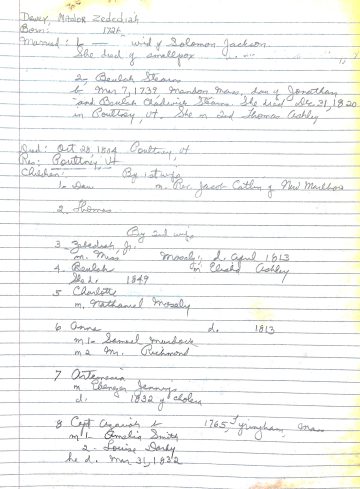 Dewey, Major Zedediah
Born: 1726
Married: 1. wid of Solomon Jackson
She died of smallpox
2. Beulah Stearns
b Mar 7, 1739 Mass, dau of Jonathan
and Beulah Chadwick Stearns She died Dec 31, 1820
in Poultney, Vt. She m 2nd Thomas Ashley
Died: Oct 28, 1804 Poultney, Vt
Res: Poultney, Vt
Children: By 1st wife
1. Dau m. Rev. Jacob Catlin of New Marlboro
2. Thomas
By 2nd wife
3. Zebediah, Jr.
m. Miss Mosely, d. April 1813
4. Beulah m Elisha Ashley
She d. 1849
5 Charlotte
m. Nathaniel Mosely
6 Anna d. 1813
m 1- Samuel Murdock
m 2 Mr. Richmond
7 Artemesia
m Ebenezer
d. 1832 of cholera
8 Capt Azariah b 1765, Tyringham, Mass
m 1. Amelia Smith
2. Louise
he d. Mar 31, 1832